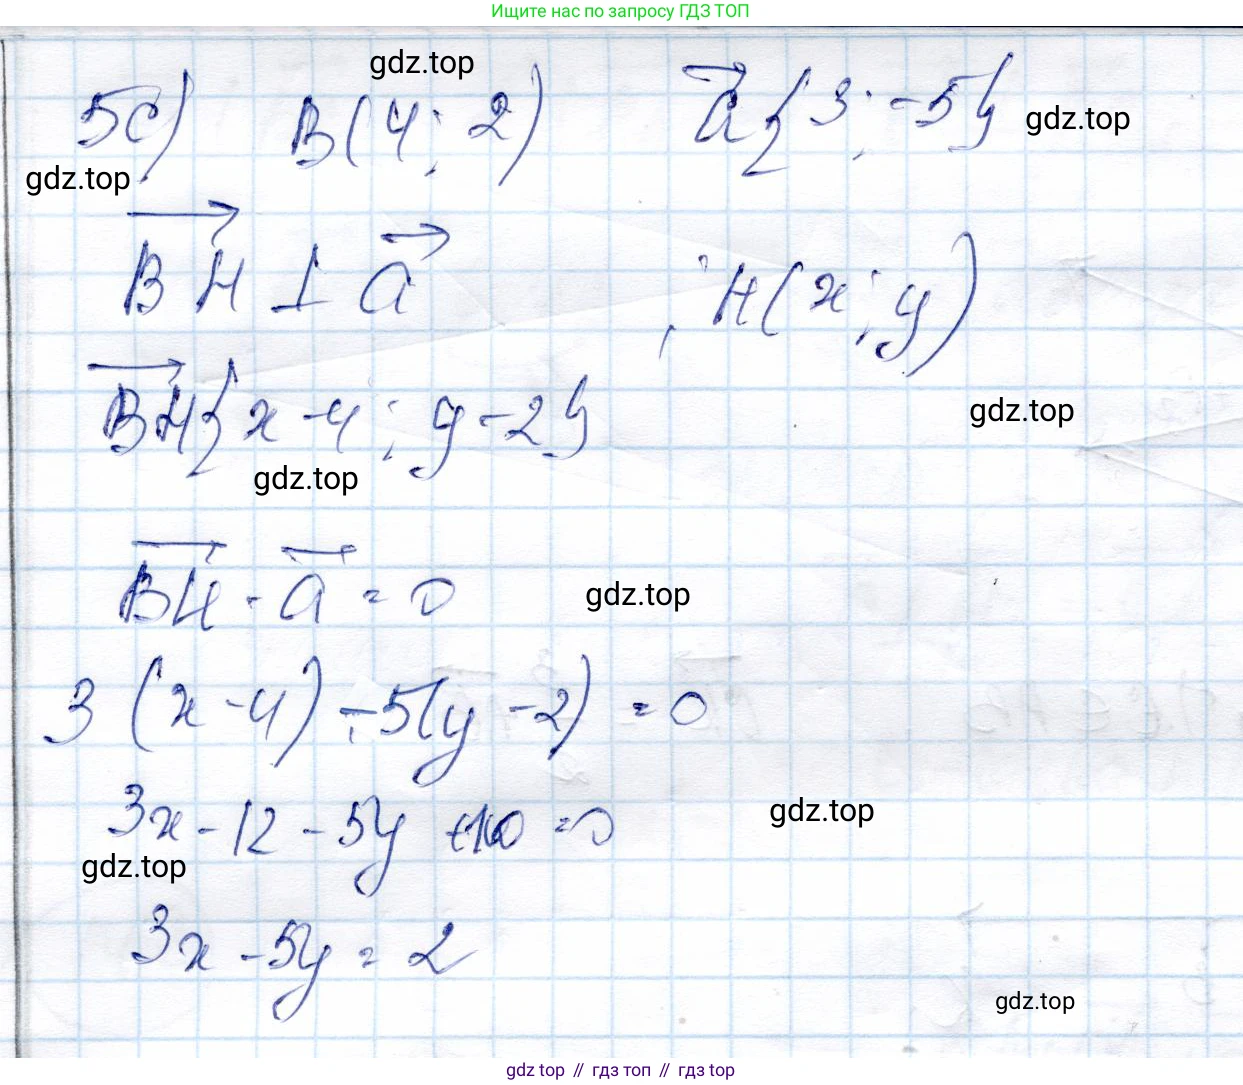 Ищите нас по запросу ГДЗ ТОП
gdz.top
5c) B(4; 2) a⃗{3; -5}
gdz.top
gdz.top
BH⃗ ⊥ a⃗ ; H(x; y)
BH⃗{x-4; y-2}
gdz.top
gdz.top
BH⃗ · a⃗ = 0
gdz.top
3(x-4) -5(y-2) = 0
3x - 12 - 5y + 10 = 0
gdz.top
gdz.top
3x - 5y = 2
gdz.top
gdz top // гдз топ // gdz top